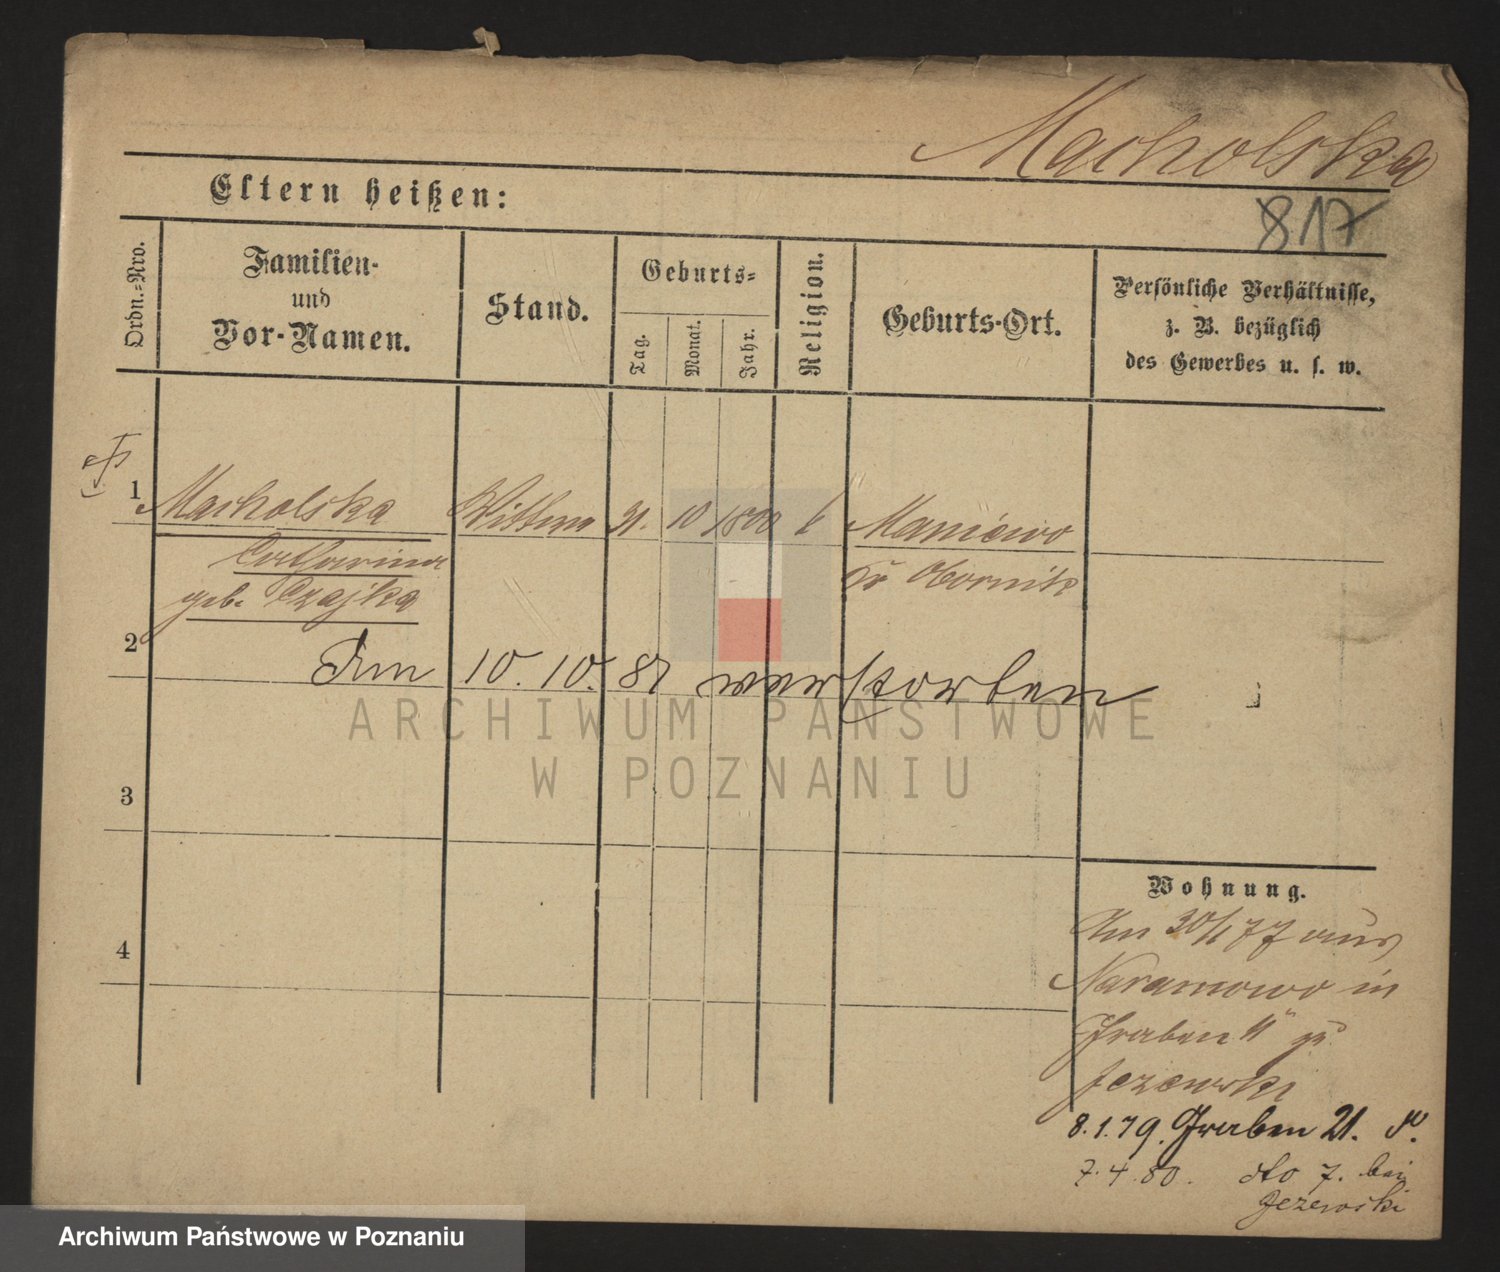 Macholska
817
Eltern heißen:
Ordn.-Nro.
Familien-
und
Vor-Namen.
Stand.
Geburts-
Tag.
Monat.
Jahr.
Religion.
Geburts-Ort.
Persönliche Verhältnisse,
z. B. bezüglich
des Gewerbes u. s. w.
1 Macholska Wittwe 21. 10 1800 k Maniewo
Catharina Kr Obornik
geb. Czajka
2
Am 10. 10. 81 verstorben
ARCHIWUM PAŃSTWOWE
W POZNANIU
3
4
Wohnung.
Am 30/1 77 aus
Naramowo in
Graben 11 zu
Jezewski
8.1.79. Graben 21.
7.4.80. dto 7. bei
Jezewski
Archiwum Państwowe w Poznaniu